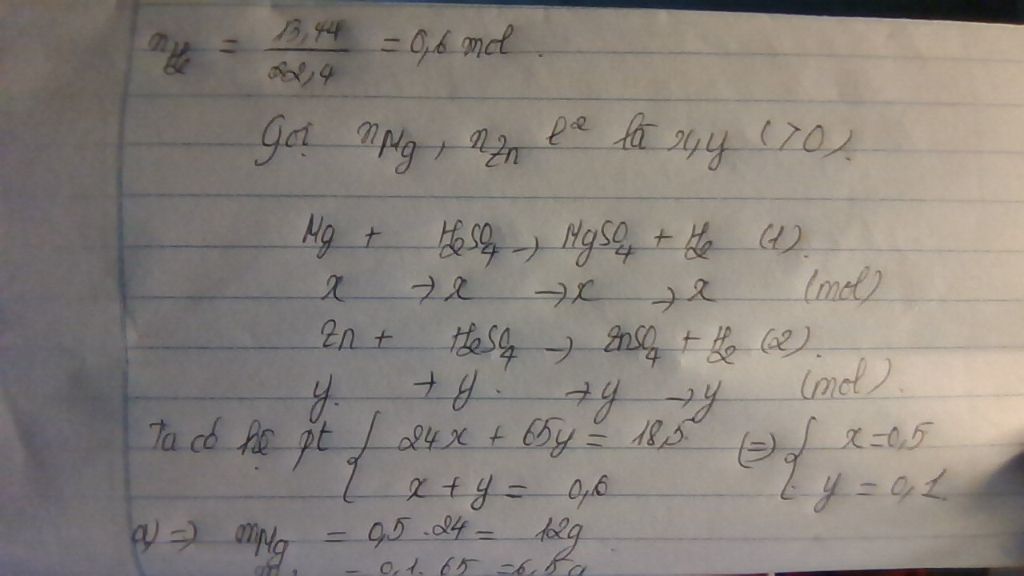 nH2 = 13,44/22,4 = 0,6 mol.
Gọi nMg, nZn l2 là x,y (>0).
Mg + H2SO4 → MgSO4 + H2 (1).
x → x → x → x (mol)
Zn + H2SO4 → ZnSO4 + H2 (2).
y. → y. → y → y (mol).
Ta có hệ pt { 24x + 65y = 18,5 (=) { x = 0,5
x + y = 0,6 y = 0,1
a) => mMg = 0,5 . 24 = 12g
= 0,1. 65 = 6,5g